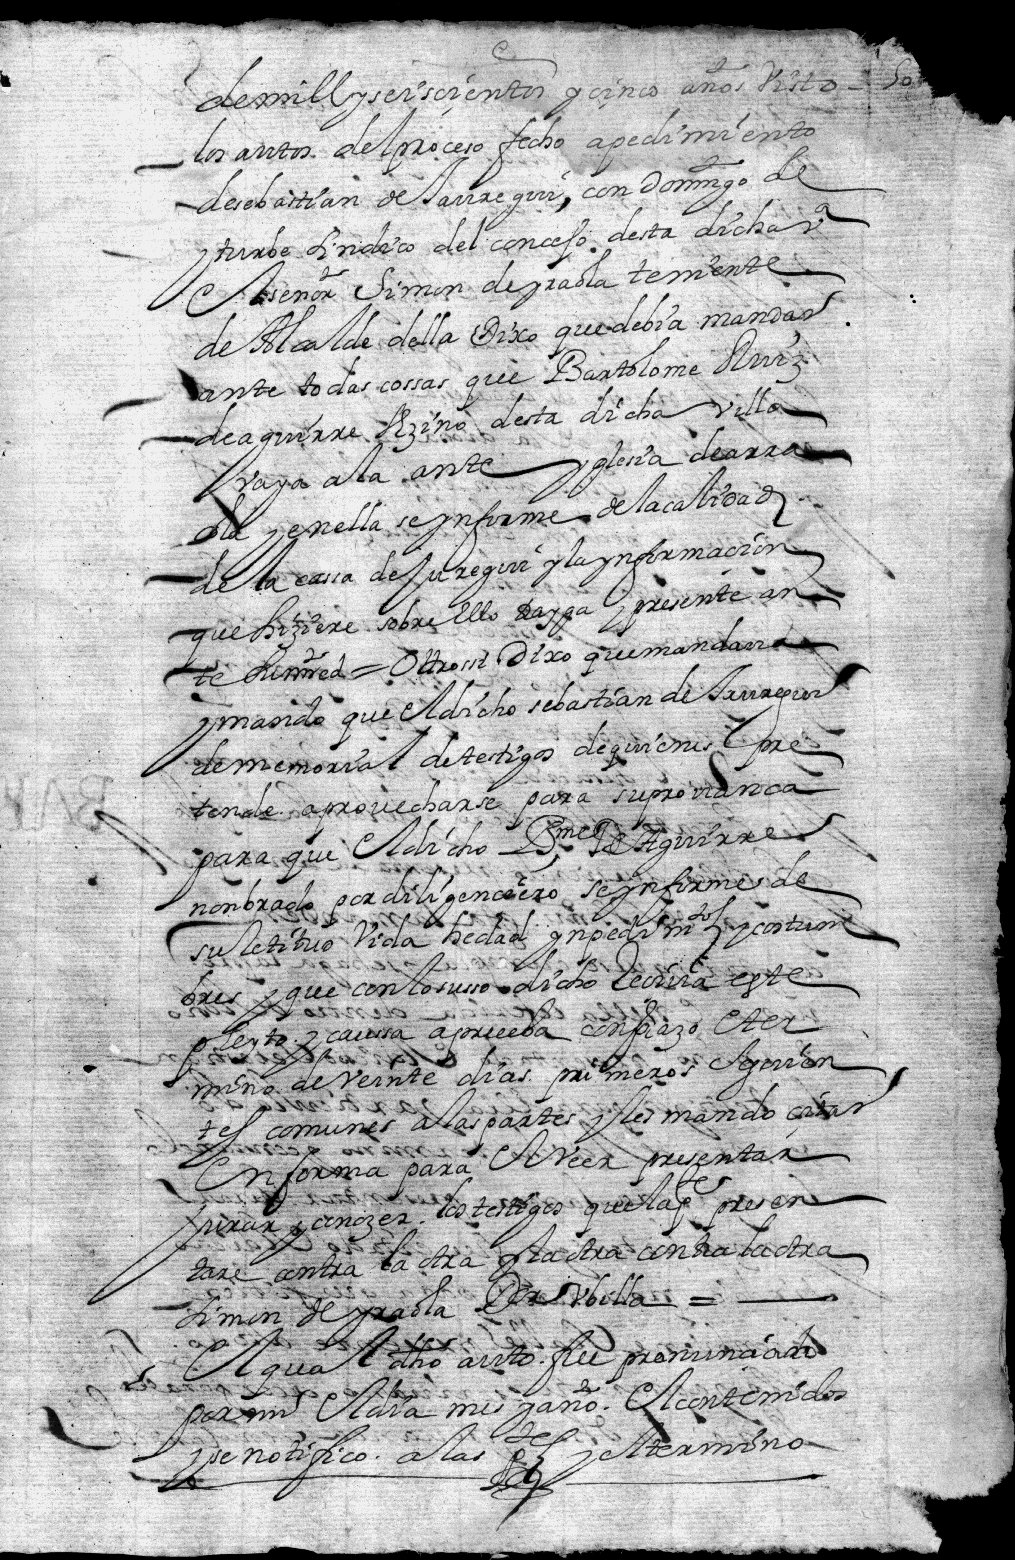 de mill y seiscientos y cinco años Visto
los autos del proceso fecho a pedimiento
de sebastian de Jauregui, con domingo de
yturbe sindico del concejo desta dicha vª
El señor Simon de yraola teniente
de Alcalde della Dixo que debia mandar
ante todas cossas que Bartolome Ruiz
de aguirre Vzino desta dicha Villa
vaya a la ante yglesia de arra
ola y en ella se ynforme de la calidad
de la cassa de Jauregui y la ynformacion
que hiziere sobre ello trayga y presente an
te su md = Otrossi Dixo que mandava
y mando que el dicho sebastian de Jauregui
de memorial de testigos de quienes pre
tende aprovecharse para su provanca
para que el dicho Bme Rs de Aguirre
nonbrado por diligenciero se ynforme de
su letituo Vida hedad ynpedimtos y costum
bres y que con lo susso dicho Recivia este
pleyto y caussa a prueba con plazo e ter
mino de veinte dias primeros siguien
tes comunes a las partes y les mando citar
En forma para el Veer presentar
jurar y conozer los testigos que las ptes presen
tare contra la otra y la otra contra la otra
Simon de yraola Dor Vbilla =
El qual dho auto fue pronunciado
por mi El dia mes y año. El contenidos
y se notifico a las ptes y el termino